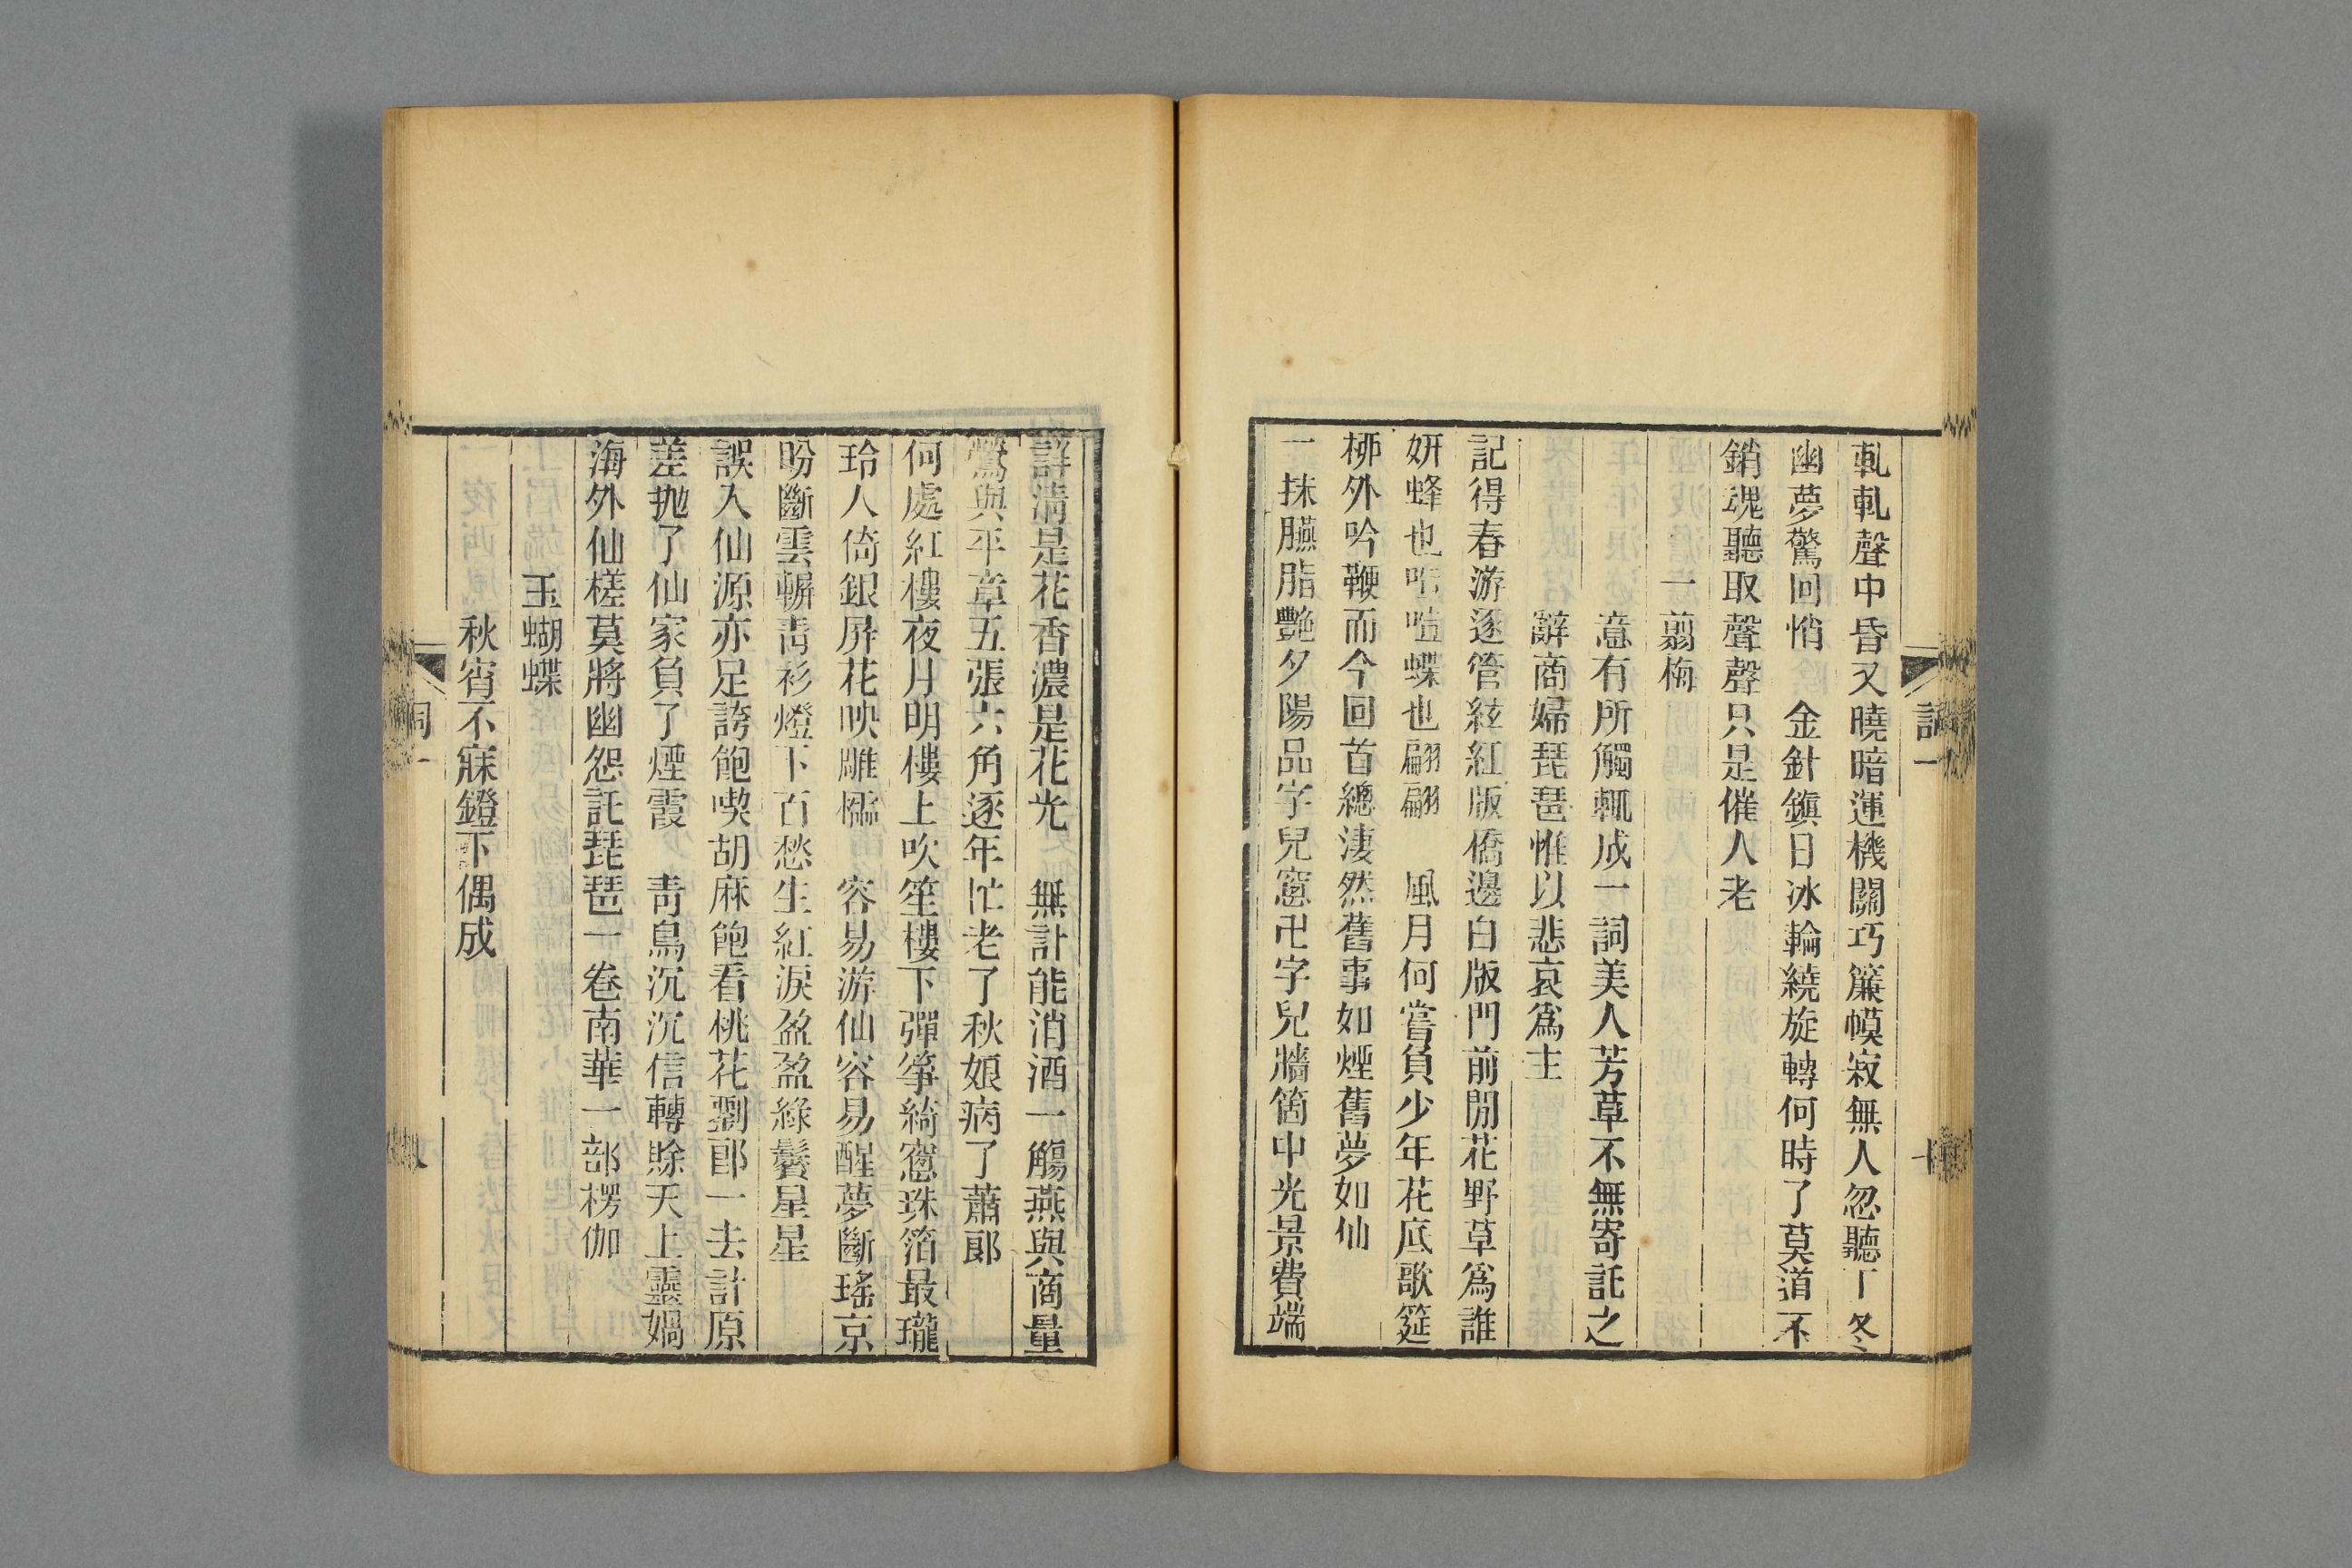 軋軋聲中昏又曉暗運機關巧簾幙寂無人忽聽丁冬
幽夢驚回悄　金針鎭日冰輪繞旋轉何時了莫道不
銷魂聽取聲聲只是催人老
一翦梅
意有所觸輒成一詞美人芳草不無寄託之
辭商婦琵琶惟以悲哀爲主
記得春游逐管絃紅版橋邊白版門前閒花野草爲誰
妍蜂也喧喧蝶也翩翩　風月何嘗負少年花底歌筵
桺外吟鞭而今回首總淒然舊事如煙舊夢如仙
一抹臙脂艷夕陽品字兒窻卍字兒牆箇中光景費端
詳淸是花香濃是花光　無計能消酒一觴燕與商量
鶯與平章五張六角逐年忙老了秋娘病了蕭郞
何處紅樓夜月明樓上吹笙樓下彈箏綺窻珠箔最瓏
玲人倚銀屛花映雕櫺　容易游仙容易醒夢斷瑤京
盼斷雲輧靑衫燈下百愁生紅淚盈盈綠鬢星星
誤入仙源亦足誇飽喫胡麻飽看桃花劉郞一去計原
差抛了仙家負了煙霞　靑鳥沉沉信轉賒天上靈媧
海外仙槎莫將幽怨託琵琶一卷南華一部楞伽
玉蝴蝶
秋宵不寐鐙下偶成
詞一